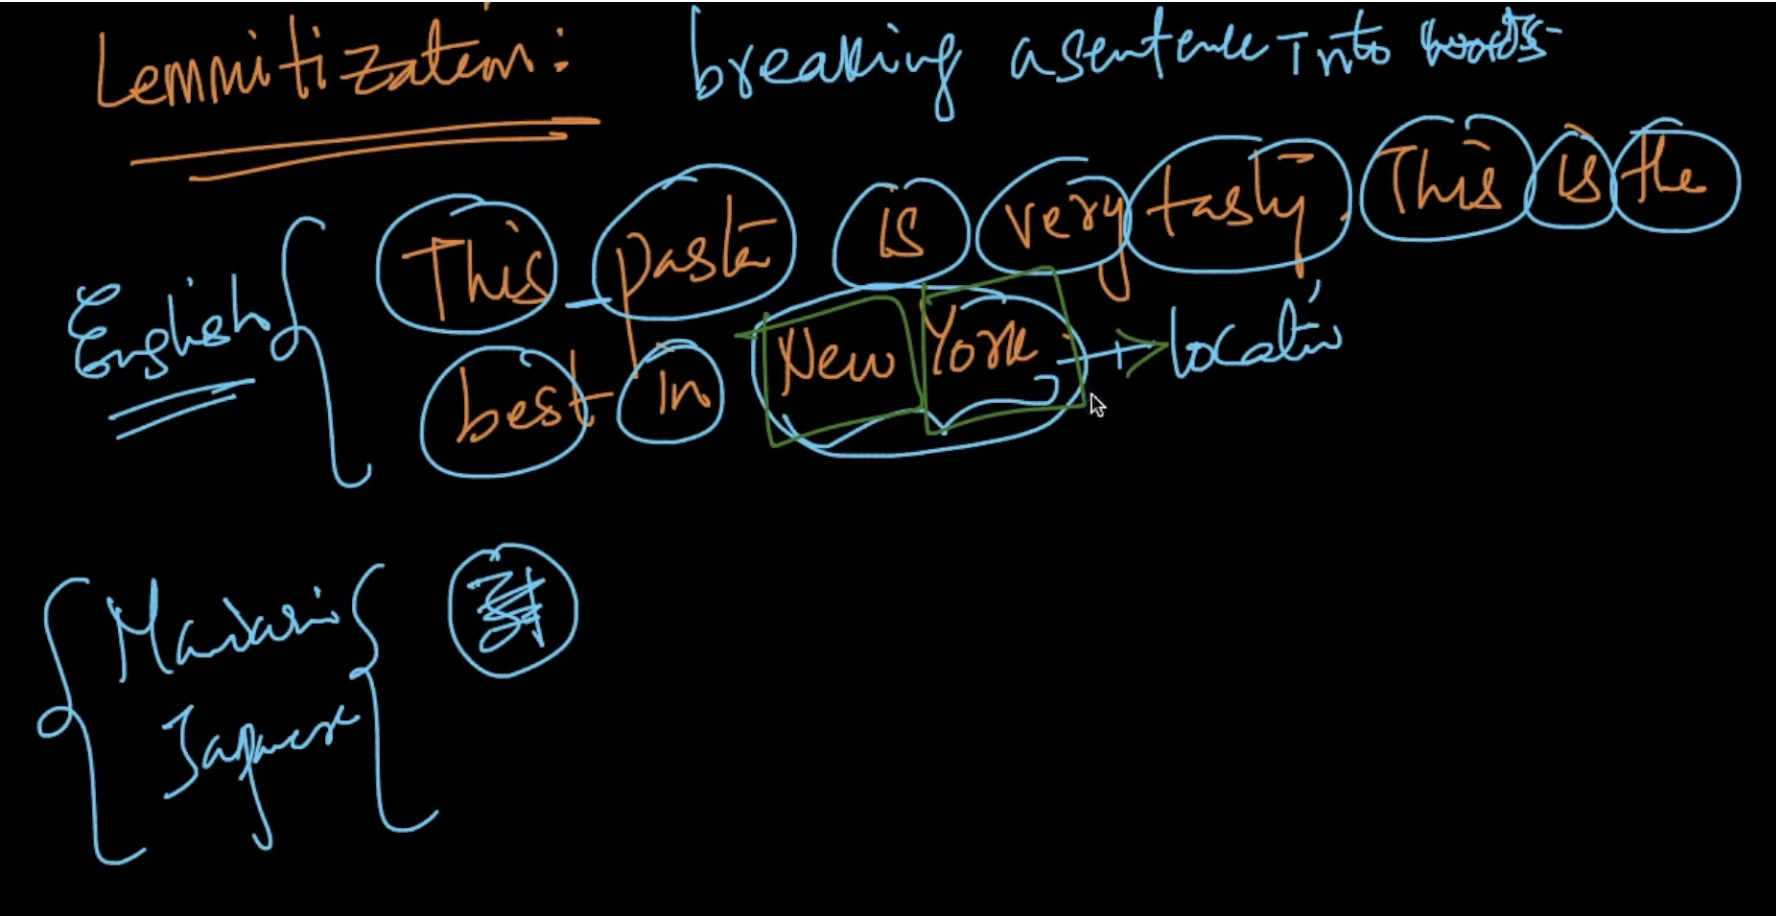 Lemmitization: breaking a sentence Into words
English { This pasta is very tasty. This is the
best in New York → Location
Mandarin
Japanese